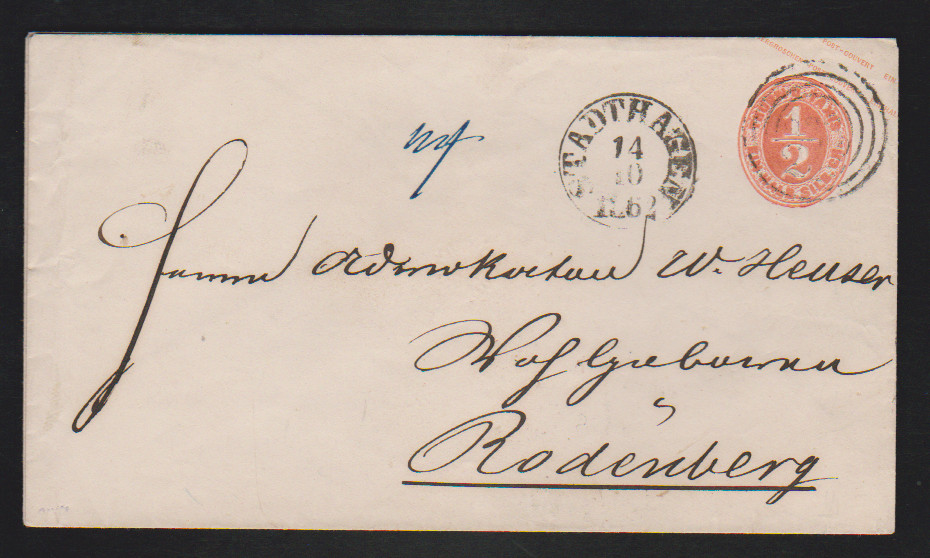 POST-COUVERT
STADTHAGEN
14
10
1862
1/2
Herrn Advokaten W. Heuser
Wohlgeboren
Rodenberg